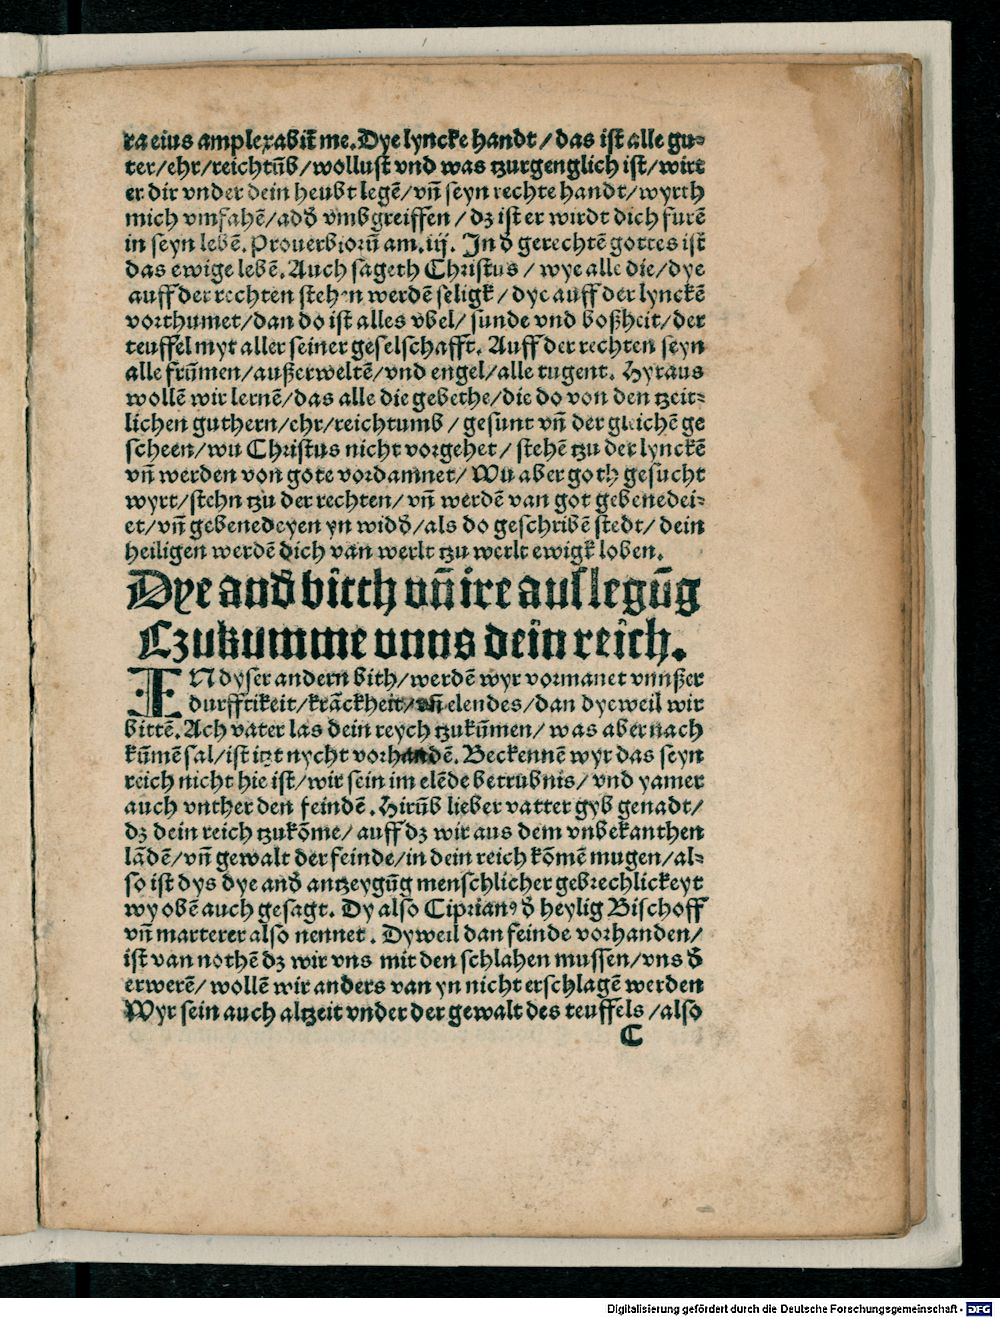 ra eius amplexabit̄ me. Dye lyncke handt / das ist alle gu⸗
ter/ehr/reichtūb/wollust vnd was tzurgenglich ist/wirt
er dir vnder dein heubt legē/vn̄ seyn rechte handt/wyrth
mich vmfahē/adđ vmbgreiffen / dz ist er wirdt dich furē
in seyn lebē. Prouerbiorū am. iij. In đ gerechtē gottes ist
das ewige lebē. Auch sageth Christus / wye alle die/dye
auff der rechten stehen werdē seligk / dye auff der lynckē
vorthumet/dan do ist alles vbel/ sunde vnd boßheit/der
teuffel myt aller seiner geselschafft. Auff der rechten seyn
alle frūmen/außerweltē/vnd engel/alle tugent. Hyraus
wollē wir lernē/das alle die gebethe/die do von den tzeit⸗
lichen guthern/ehr/reichtumb / gesunt vn̄ der gleichē ge
scheen/wu Christus nicht vorgehet/ stehē tzu der lynckē
vn̄ werden von gote vordamnet/ Wu aber goth gesucht
wyrt/stehn tzu der rechten/ vn̄ werdē van got gebenedei⸗
et/vn̄ gebenedeyen yn widđ/als do geschribē stedt/ dein
heiligen werdē dich van werlt tzu werlt ewigk loben.
Dye anđ bitth vn̄ ire auslegūg
Czukumme vnns dein reich.
IN dyser andern bith/werdē wyr vormanet vnnßer
durfftikeit/krāckheit/vn̄ elendes/dan dyeweil wir
bittē. Ach vater las dein reych tzukūmen/ was aber nach
kūmē sal/ist itzt nycht vorhandē. Beckennē wyr das seyn
reich nicht hie ist/wir sein im elēde betrubnis/ vnd yamer
auch vnther den feindē. Hirūb lieber vatter gyb genadt/
dz dein reich tzukōme/ auff dz wir aus dem vnbekanthen
lādē/vn̄ gewalt der feinde/in dein reich kōmē mugen/al⸗
so ist dys dye anđ antzeygūg menschlicher gebrechlickeyt
wy obē auch gesagt. Dy also Ciprianꝰ đ heylig Bischoff
vn̄ marterer also nennet. Dyweil dan feinde vorhanden/
ist van nothē dz wir vns mit den schlahen mussen/vns đ
erwerē/ wollē wir anders van yn nicht erschlagē werden
Wyr sein auch altzeit vnder der gewalt des teuffels /also
C
Digitalisierung gefördert durch die Deutsche Forschungsgemeinschaft - DFG